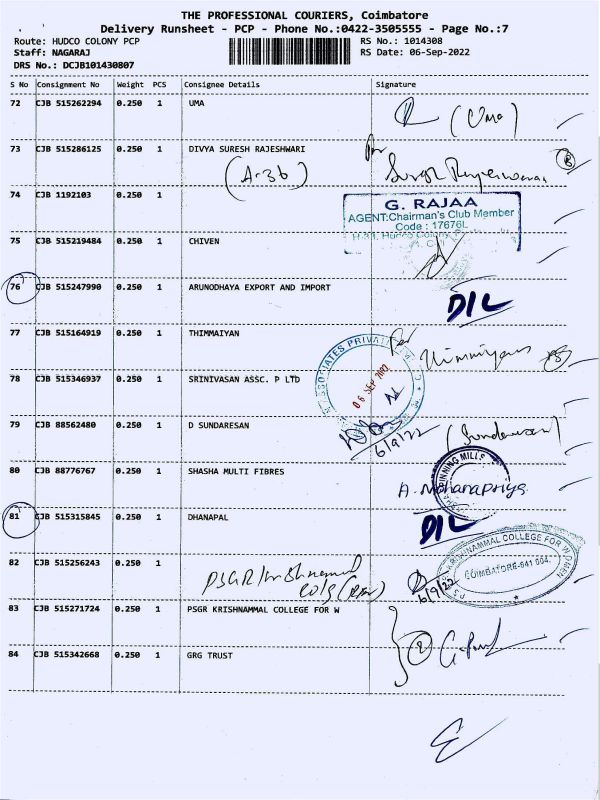 THE PROFESSIONAL COURIERS, Coimbatore
Delivery Runsheet - PCP - Phone No.:0422-3505555 - Page No.:7
Route: HUDCO COLONY PCP RS No.: 1014308
Staff: NAGARAJ RS Date: 06-Sep-2022
DRS No.: DCJB101430807
S No Consignment No Weight PCS Consignee Details Signature
72 CJB 515262294 0.250 1 UMA (Uma)
73 CJB 515286125 0.250 1 DIVYA SURESH RAJESHWARI
(A-36)
74 CJB 1192103 0.250 1
G. RAJAA
AGENT:Chairman's Club Member
Code : 17676L
75 CJB 515219484 0.250 1 CHIVEN
76 CJB 515247990 0.250 1 ARUNODHAYA EXPORT AND IMPORT D/L
77 CJB 515164919 0.250 1 THIMMAIYAN
78 CJB 515346937 0.250 1 SRINIVASAN ASSC. P LTD
ASSOCIATES PRIVATE
06 SEP 2022
6/9/22
79 CJB 88562480 0.250 1 D SUNDARESAN (Sundaresan)
80 CJB 88776767 0.250 1 SHASHA MULTI FIBRES
SPINNING MILLS
A. Mohanapriya
81 CJB 515315845 0.250 1 DHANAPAL D/L
82 CJB 515256243 0.250 1
6/9/22
KRISHNAMMAL COLLEGE FOR WOMEN
COIMBATORE-641 004.
83 CJB 515271724 0.250 1 PSGR KRISHNAMMAL COLLEGE FOR W
2
84 CJB 515342668 0.250 1 GRG TRUST